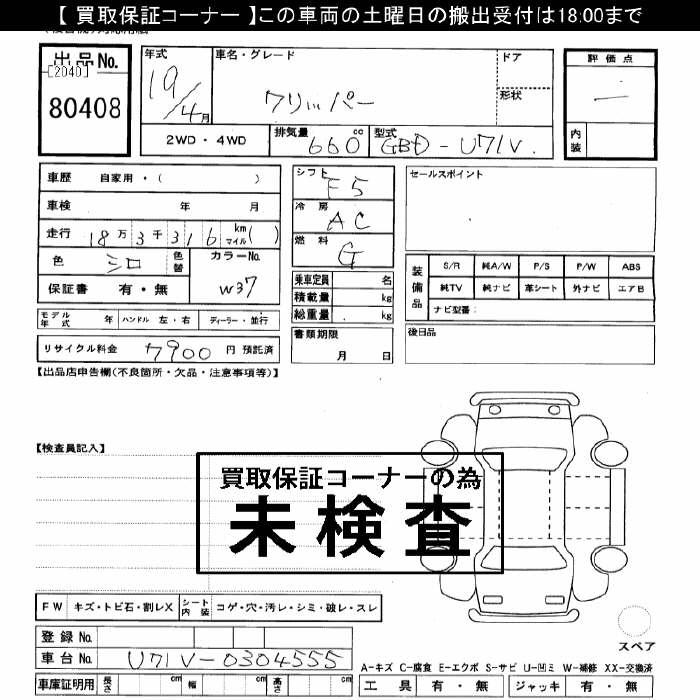 【 買取保証コーナー 】この車両の土曜日の搬出受付は18:00まで
出品No.
[2040]
80408
年式
19/4月
車名・グレード
クリッパー
ドア
形状
評価点
内装
2WD・4WD
排気量 660 cc
型式 GBD-U71V
車歴 自家用・( )
車検 年 月
走行 18万3千316 km マイル( )
色 シロ
色替
カラーNo. W37
保証書 有・無
モデル年式 年 ハンドル 左・右 ディーラー・並行
リサイクル料金 7900 円 預託済
シフト F5
冷房 AC
燃料 G
乗車定員 名
積載量 kg
総重量 kg
書類期限
月 日
セールスポイント
装備品
S/R 純A/W P/S P/W ABS
純TV 純ナビ 革シート 外ナビ エアB
ナビ型番：
後日品
【出品店申告欄(不良箇所・欠品・注意事項等)】
【検査員記入】
買取保証コーナーの為
未検査
FW キズ・トビ石・割レX シート内装 コゲ・穴・汚レ・シミ・破レ・スレ
登録No.
車台No. U71V-0304555
車庫証明用 長さ cm 幅 cm 高さ cm
スペア
A-キズ C-腐食 E-エクボ S-サビ U-凹ミ W-補修 XX-交換済
工具 有・無 ジャッキ 有・無